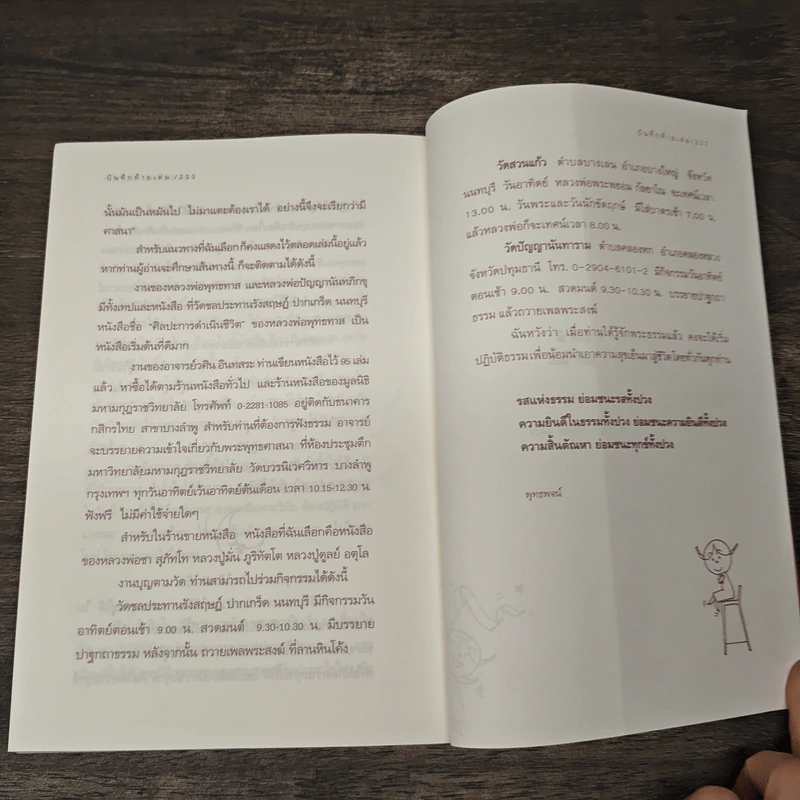 บันทึกท้ายเล่ม /222
นั้นมันเป็นหมันไป ไม่มาแตะต้องเราได้ อย่างนี้จึงจะเรียกว่ามี
ศาสนา"
สำหรับแนวทางที่ฉันเลือก ก็คงแสดงไว้ตลอดเล่มนี้อยู่แล้ว
หากท่านผู้อ่านจะศึกษาเส้นทางนี้ ก็จะติดตามได้ดังนี้
งานของหลวงพ่อพุทธทาส และหลวงพ่อปัญญานันทภิกขุ
มีทั้งเทปและหนังสือ ที่วัดชลประทานรังสฤษฎ์ ปากเกร็ด นนทบุรี
หนังสือชื่อ "ศิลปะการดำเนินชีวิต" ของหลวงพ่อพุทธทาส เป็น
หนังสือเริ่มต้นที่ดีมาก
งานของอาจารย์วศิน อินทสระ ท่านเขียนหนังสือไว้ 95 เล่ม
แล้ว หาซื้อได้ตามร้านหนังสือทั่วไป และร้านหนังสือของมูลนิธิ
มหามกุฏราชวิทยาลัย โทรศัพท์ 0-2281-1085 อยู่ติดกับธนาคาร
กสิกรไทย สาขาบางลำพู สำหรับท่านที่ต้องการฟังธรรม อาจารย์
จะบรรยายความเข้าใจเกี่ยวกับพระพุทธศาสนา ที่ห้องประชุมตึก
มหาวิทยาลัยมหามกุฏราชวิทยาลัย วัดบวรนิเวศวิหาร บางลำพู
กรุงเทพฯ ทุกวันอาทิตย์เว้นอาทิตย์ต้นเดือน เวลา 10.15-12.30 น.
ฟังฟรี ไม่มีค่าใช้จ่ายใดๆ
สำหรับในร้านขายหนังสือ หนังสือที่ฉันเลือกคือหนังสือ
ของหลวงพ่อชา สุภัทโท หลวงปู่มั่น ภูริทัตโต หลวงปู่ดูลย์ อตุโล
งานบุญตามวัด ท่านสามารถไปร่วมกิจกรรมได้ดังนี้
วัดชลประทานรังสฤษฎ์ ปากเกร็ด นนทบุรี มีกิจกรรมวัน
อาทิตย์ตอนเช้า 9.00 น. สวดมนต์ 9.30-10.30 น. มีบรรยาย
ปาฐกถาธรรม หลังจากนั้น ถวายเพลพระสงฆ์ ที่ลานหินโค้ง
บันทึกท้ายเล่ม
วัดสวนแก้ว ตำบลบางเลน อำเภอบางใหญ่ จังหวัด
นนทบุรี วันอาทิตย์ หลวงพ่อพระพยอม กัลยาโณ จะเทศน์เวลา
13.00 น. วันพระและวันนักขัตฤกษ์ มีใส่บาตรเช้า 7.00 น.
แล้วหลวงพ่อก็จะเทศน์เวลา 8.00 น.
วัดปัญญานันทาราม ตำบลคลองหก อำเภอคลองหลวง
จังหวัดปทุมธานี โทร. 0-2904-6101-2 มีกิจกรรมวันอาทิตย์
ตอนเช้า 9.00 น. สวดมนต์ 9.30-10.30 น. บรรยายปาฐกถา
ธรรม แล้วถวายเพลพระสงฆ์
ฉันหวังว่า เมื่อท่านได้รู้จักพระธรรมแล้ว คงจะได้เริ่ม
ปฏิบัติธรรม เพื่อน้อมนำเอาความสุขเย็นมาสู่ชีวิตโดยทั่วกันทุกท่าน
รสแห่งธรรม ย่อมชนะรสทั้งปวง
ความยินดีในธรรมทั้งปวง ย่อมชนะความยินดีทั้งปวง
ความสิ้นตัณหา ย่อมชนะทุกข์ทั้งปวง
พุทธพจน์